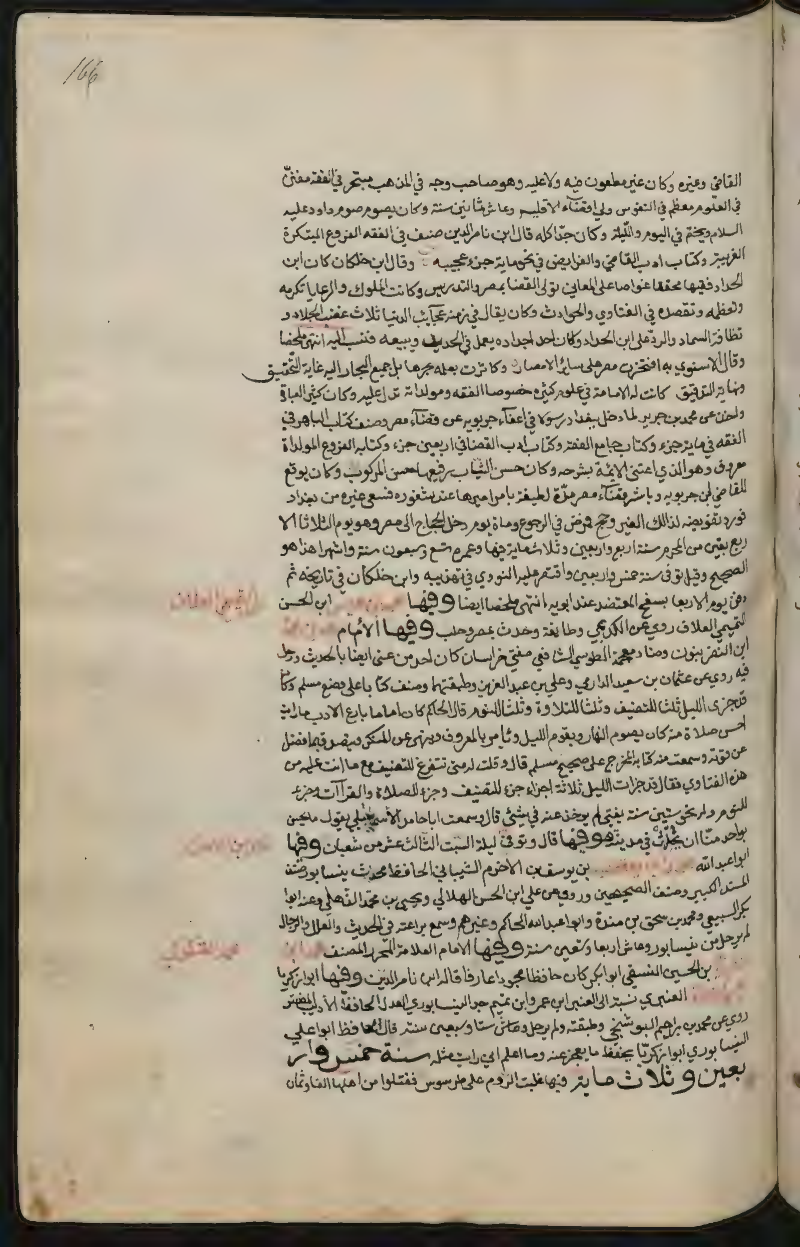 166
القاضي وغيره وكان غير مطعون فيه ولا عليه وهو صاحب وجه في المذهب متبحر في الفقه مفنن
في العلوم معظم في النفوس ولي اقضآء الاقليم وعاش ثمانين سنة وكان يصوم صوم داود عليه
السلام ويختم في اليوم والليلة وكان جدا كله قال ابن ناصر الدين صنف في الفقه الفروع المبتكرة
الغريبة وكتاب ادب القاضي والفرايض في نحو ماية جزء عجيبه وقال ابن خلكان كان ابن
الحداد فقيها محققا غواصا على المعاني تولى القضا بمصر والتدريس وكانت الملوك والرعايا تكرمه
وتعظمه وتقصده في الفتاوي والحوادث وكان يقال في زمنه عجآيب الدنيا ثلاث غضب الجلاد و
نظافة السماد والرد على ابن الحداد وكان احد اجداده يعمل في الحديد ويبيعه فنسب اليه انتهى ملخصا
وقال الاسنوي به افتخرت مصر على سائر الامصار وكاثرت بعلمه بحرها بل جميع البحار اليه غاية التحقيق
ونهاية التدقيق كانت له الامامة في علوم كثيرة خصوصا الفقه ومولداته تدل عليه وكان كثير العبادة
واخذ عن محمد بن جرير لما دخل بغداد رسولا في اعفآء جربويه عن قضآء مصر وصنف كتاب الباهر في
الفقه في ماية جزء وكتاب جامع الفقه وكتاب ادب القضا في اربعين جزء وكتابه الفروع المولدة
معروف وهو الذي اعتنى الايمة بشرحه وكان حسن الثياب رفيعها حسن المركوب وكان يوقع
للقاضي ابن جربويه وباشر قضآء مصر مدة لطيفة بامر اميرها عند شغوره فسعى غيره من بغداد
فورد تفويضه لذالك الغير وحج فمرض في الرجوع ومات يوم دخل الحجاج الى مصر وهو يوم الثلاثا لا
ربع بقين من المحرم سنة اربع واربعين وثلاثماية فيها وعمره تسع وسبعون سنة واشهرا هذا هو
الصحيح وقيل توفى سنة خمس واربعين واقتصر عليه النووي في تهذيبه وابن خلكان في تاريخه ثم
دفن يوم الاربعا بسفح المقتضد عند ابويه انتهى ملخصا ايضا وفيها ابن الحسن
التميمي العلاف روى عن الكديمي وطايفة وحدث بمصر وحلب وفيها الامام
ابن النضر بنون وضاد معجمة الطوسي الشافعي مفتي خراسان كان احد من عنى ايضا بالحديث ورحل
فيه روى عن عثمان بن سعيد الدارمي وعلي بن عبد العزيز وطبقتهما وصنف كتابا على وضع مسلم وكان
قد جزى الليل ثلثا للتصنيف وثلثا للتلاوة وثلثا للنوم قال الحاكم كان اماما بارع الادب ما رايت
احسن صلاة منه كان يصوم النهار ويقوم الليل ويامر بالمعروف وينهى عن المنكر ويتصدق بما فضل
عن قوته وسمعت منه كتابه المخرج على صحيح مسلم قال وقلت له متى تتفرغ للتصنيف مع ما انت عليه من
هذه الفتاوي فقال قد جزات الليل ثلاثة اجزاء جزء للتصنيف وجزء للصلاة والقرآت وجزء
للنوم وله نحو ستين سنة يفتي لم يوخذ عنه في شئي قال وسمعت ابا حامد الاسماعيلي يقول ما يحسن
بواحد منا ان يحدث في مدينة هو فيها قال وتوفى ليلة السبت الثالث عشر من شعبان وفيها
ابو عبدالله بن يوسف ابن الاخرم الشيباني الحافظ محدث نيسابور صنف
المسند الكبير وصنف الصحيحين وروى عن علي ابن الحسن الهلالي ويحيى بن محمد الذهلي وعنه ابو
بكر السبيعي ومحمد بن سحق بن مندة وابو عبدالله الحاكم وغيرهم ومع براعته في الحديث والعلل والرجال
لم يرحل من نيسابور وعاش اربعا وتسعين سنة وفيها الامام العلامة المحرر المصنف
بن الحسين النسفي ابو بكر كان حافظا مجودا عارفا قاله ابن ناصر الدين وفيها ابو زكريا
العنبري نسبة الى العنبر ابن عمرو ابن تميم جد النيسابوري العدل الحافظ الاديب المفسر
روى عن محمد بن ابراهيم البوشنجي وطبقته ولم يرحل وعاش ستا وسبعين سنة قال الحافظ ابو علي
النيسابوري ابو زكريا يحفظ ما يعجز عنه وما اعلم اني رايت مثله سنة خمس وار
بعين وثلاث ماية فيها غلبت الروم على طرسوس فقتلوا من اهلها الفا وثمان